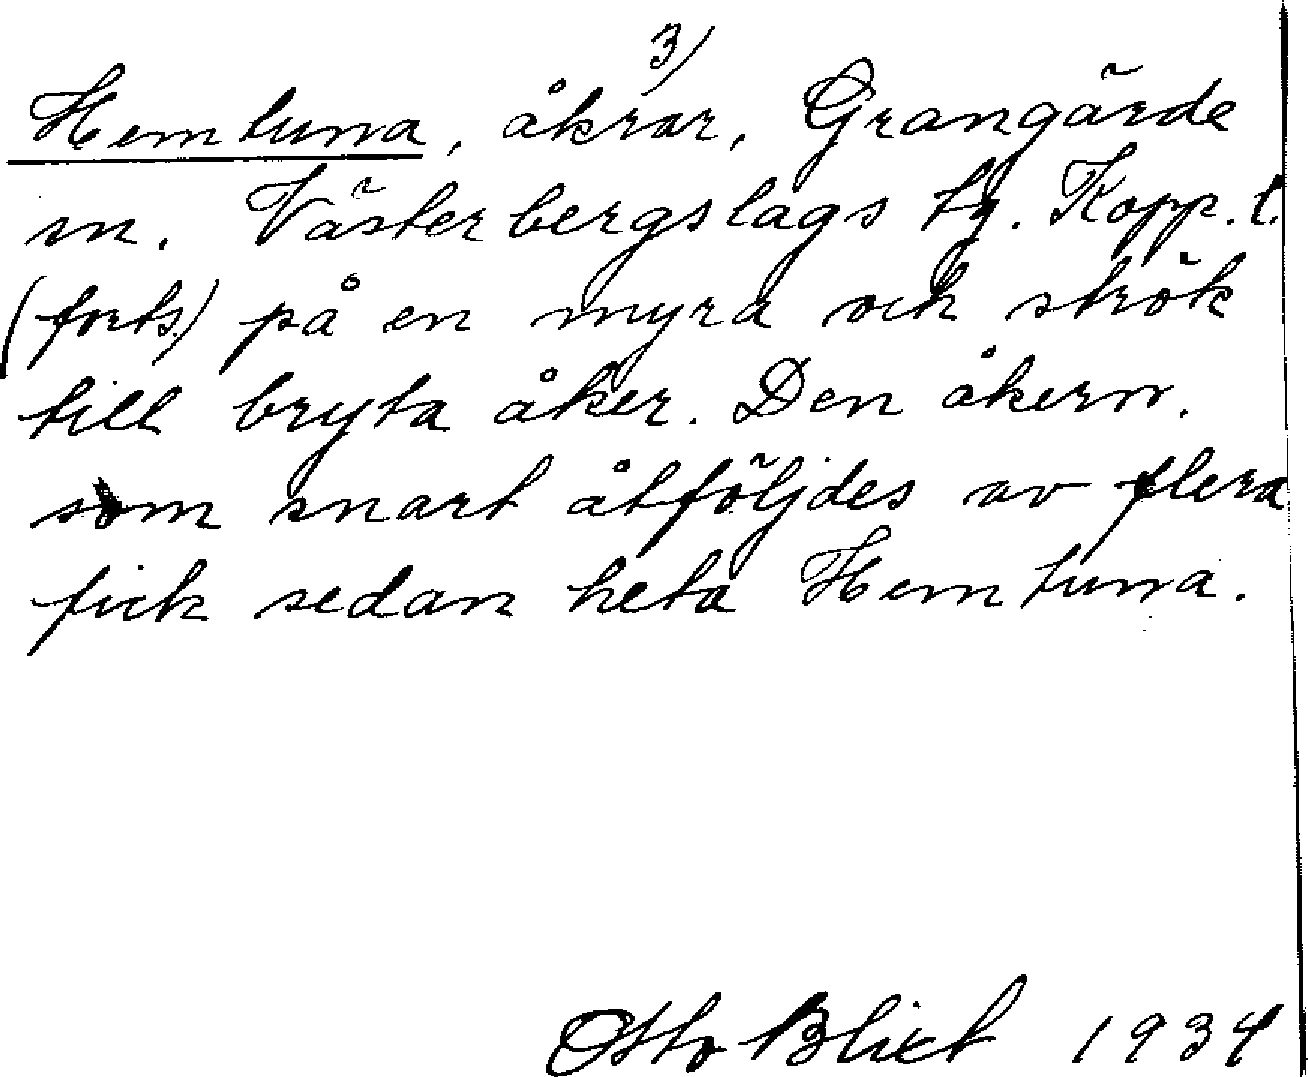 3)
Hemtuna, åkrar, Grangärde
sn. Västerbergslags tg. Kopp. l.
(forts.) på en myra och strök
till bryta åker. Den åkern.
som snart åtföljdes av flera
fick sedan heta Hemtuna.
Otto Blixt 1934